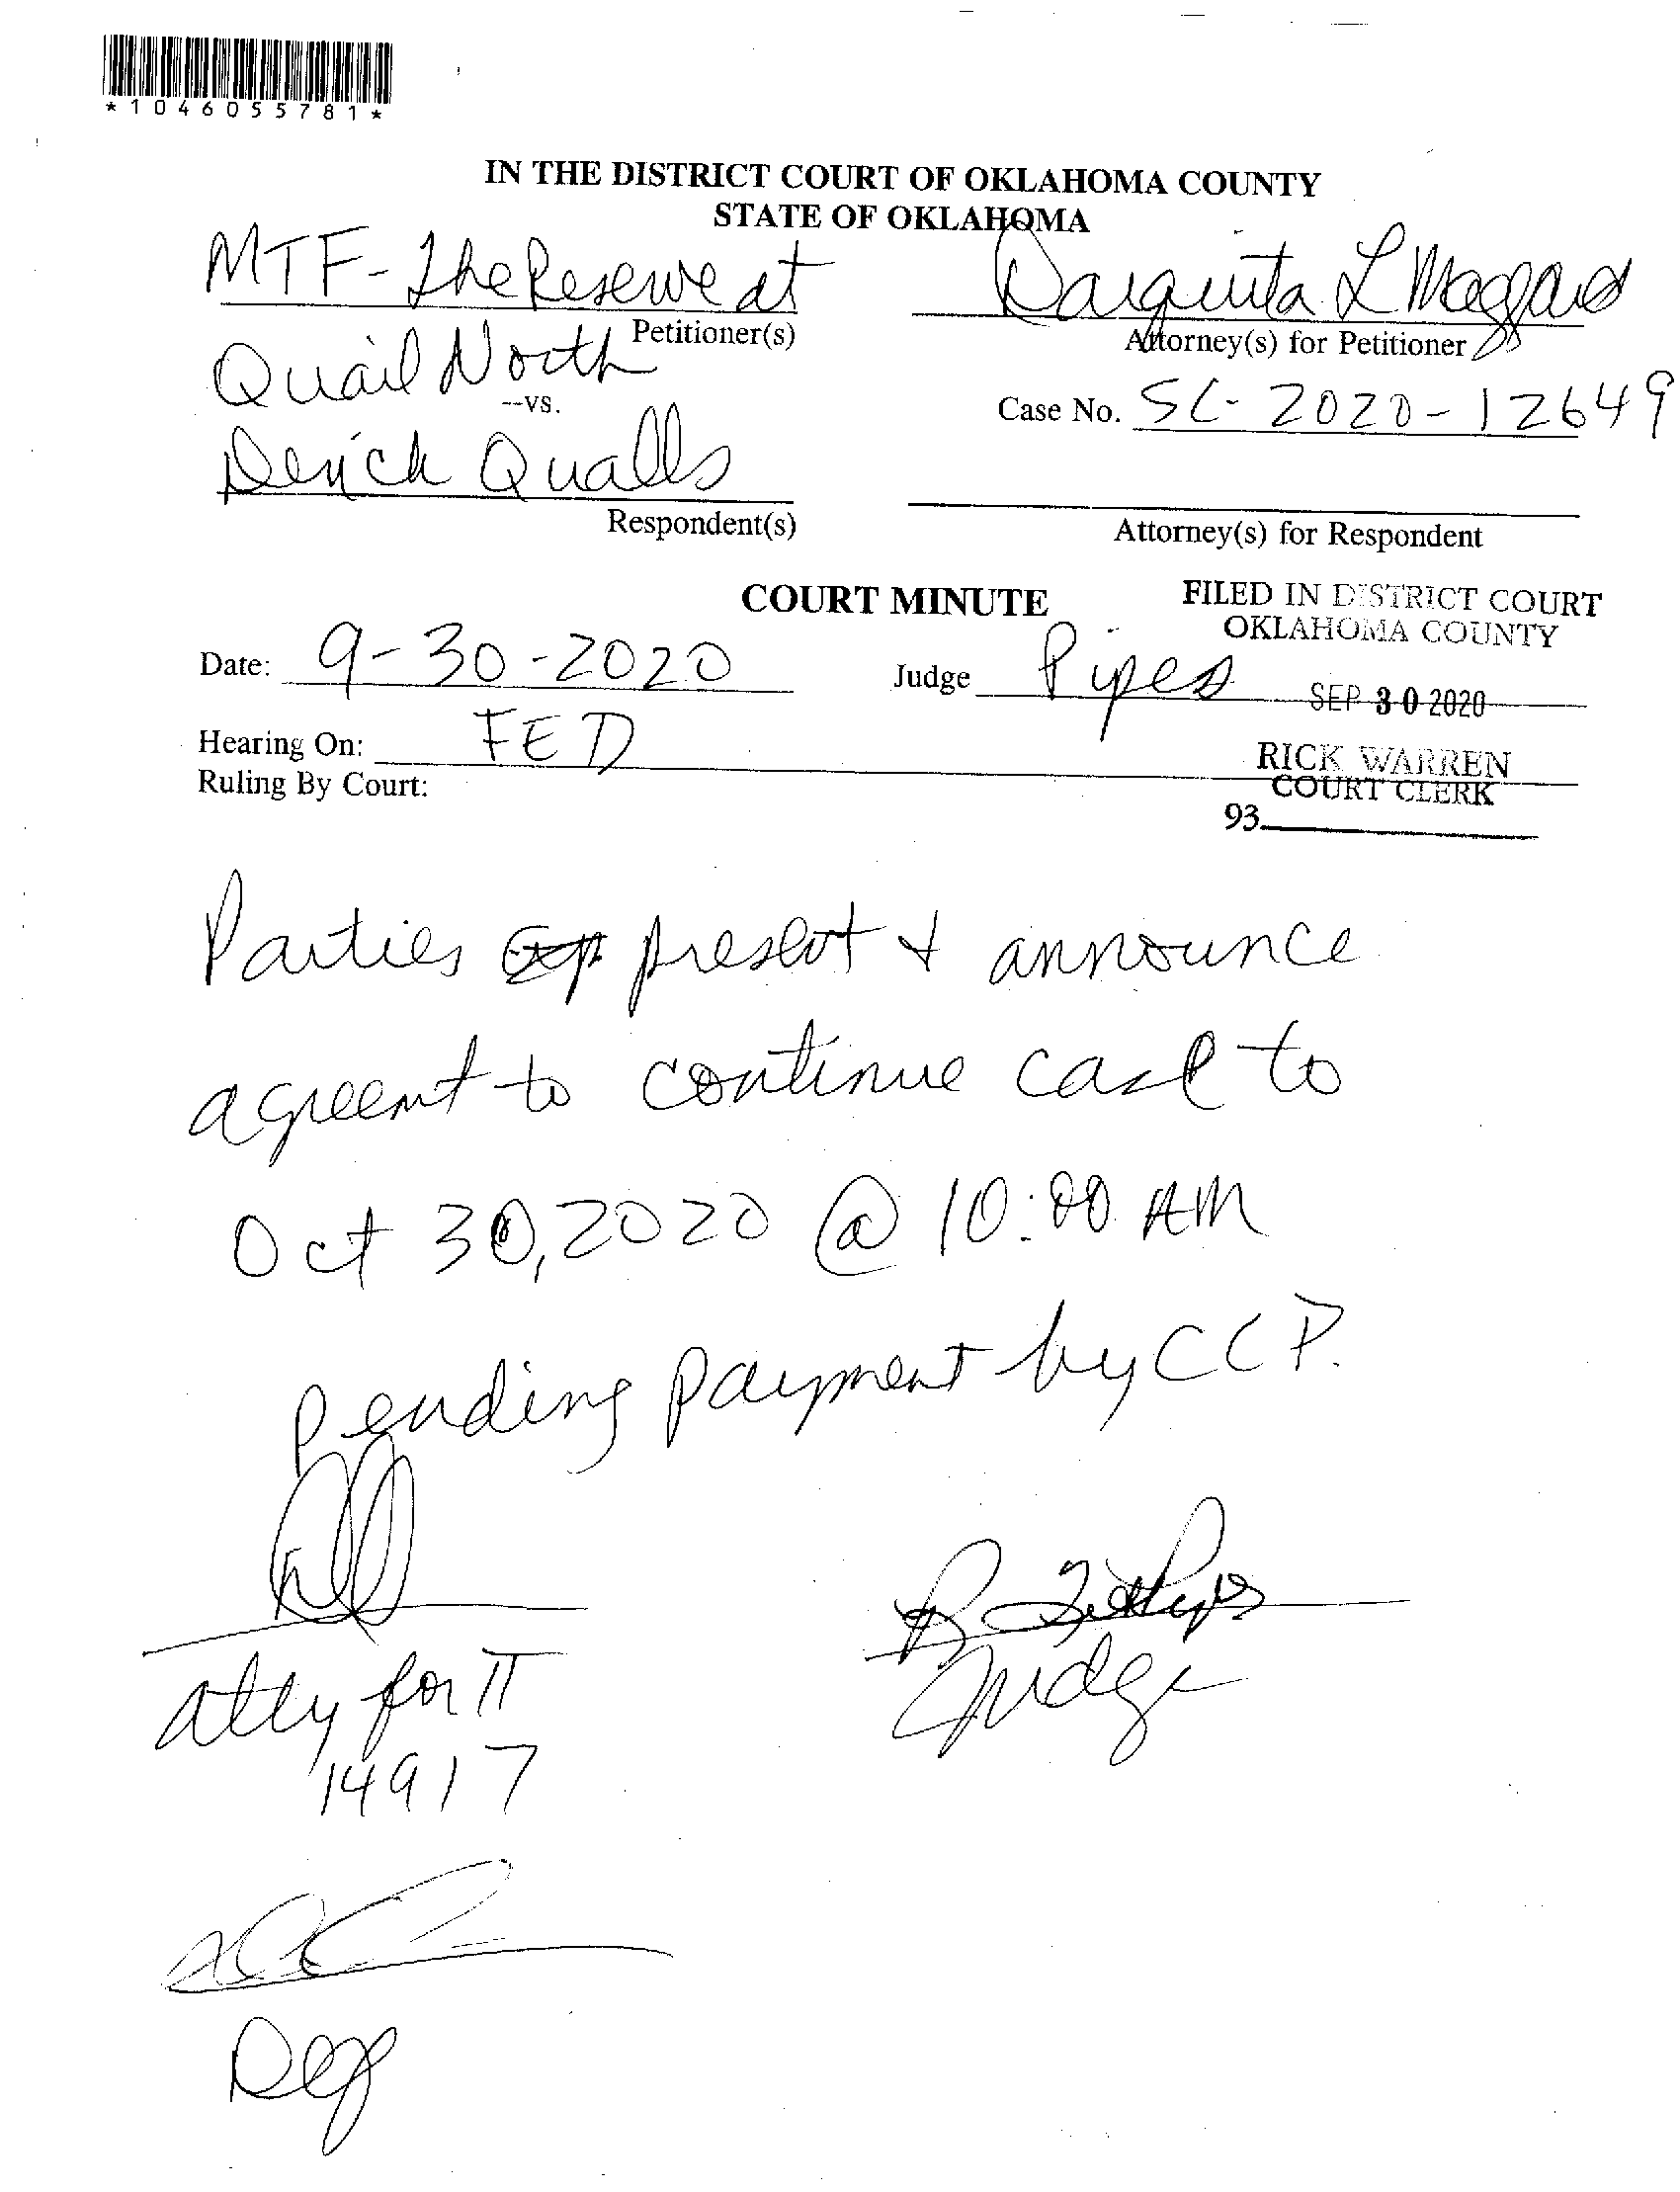 *1046055781*
IN THE DISTRICT COURT OF OKLAHOMA COUNTY
STATE OF OKLAHOMA
MTF - The Reserve at
Petitioner(s)
Quail North
--vs.
Derrick Qualls
Respondent(s)
Darquita L Maggard
Attorney(s) for Petitioner
Case No. SC-2020-12649
Attorney(s) for Respondent
COURT MINUTE
FILED IN DISTRICT COURT
OKLAHOMA COUNTY
Date: 9-30-2020
Judge Pipes
SEP 30 2020
Hearing On: FED
RICK WARREN
COURT CLERK
Ruling By Court:
93
Parties present + announce
agreemt to continue case to
Oct 30, 2020 @ 10:00 AM
pending payment by CCP.
atty for π
14917
Judge
Def